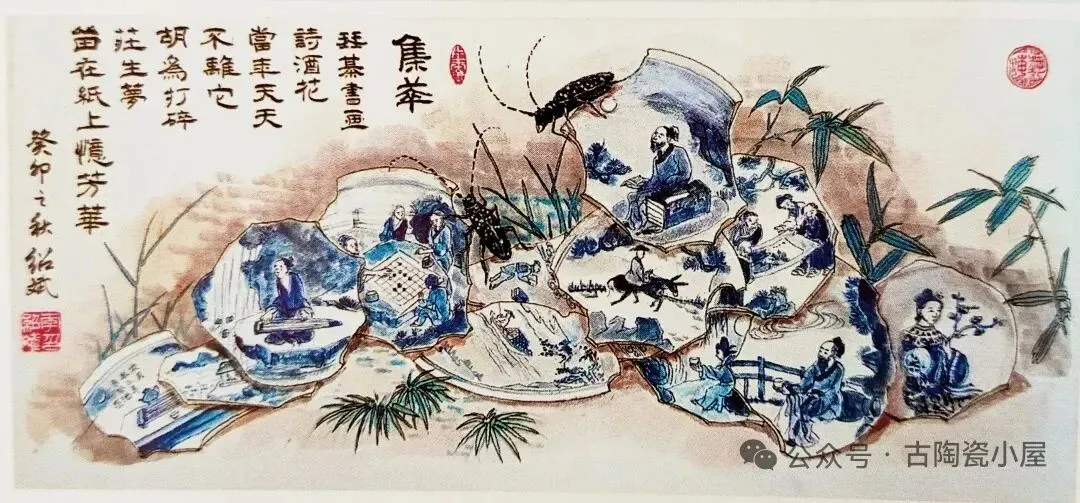 集萃
琴碁書画
詩酒花
當年天天
不離它
胡為打碎
莊生夢
留在紙上憶芳華
癸卯之秋 紹斌
公众号 · 古陶瓷小屋